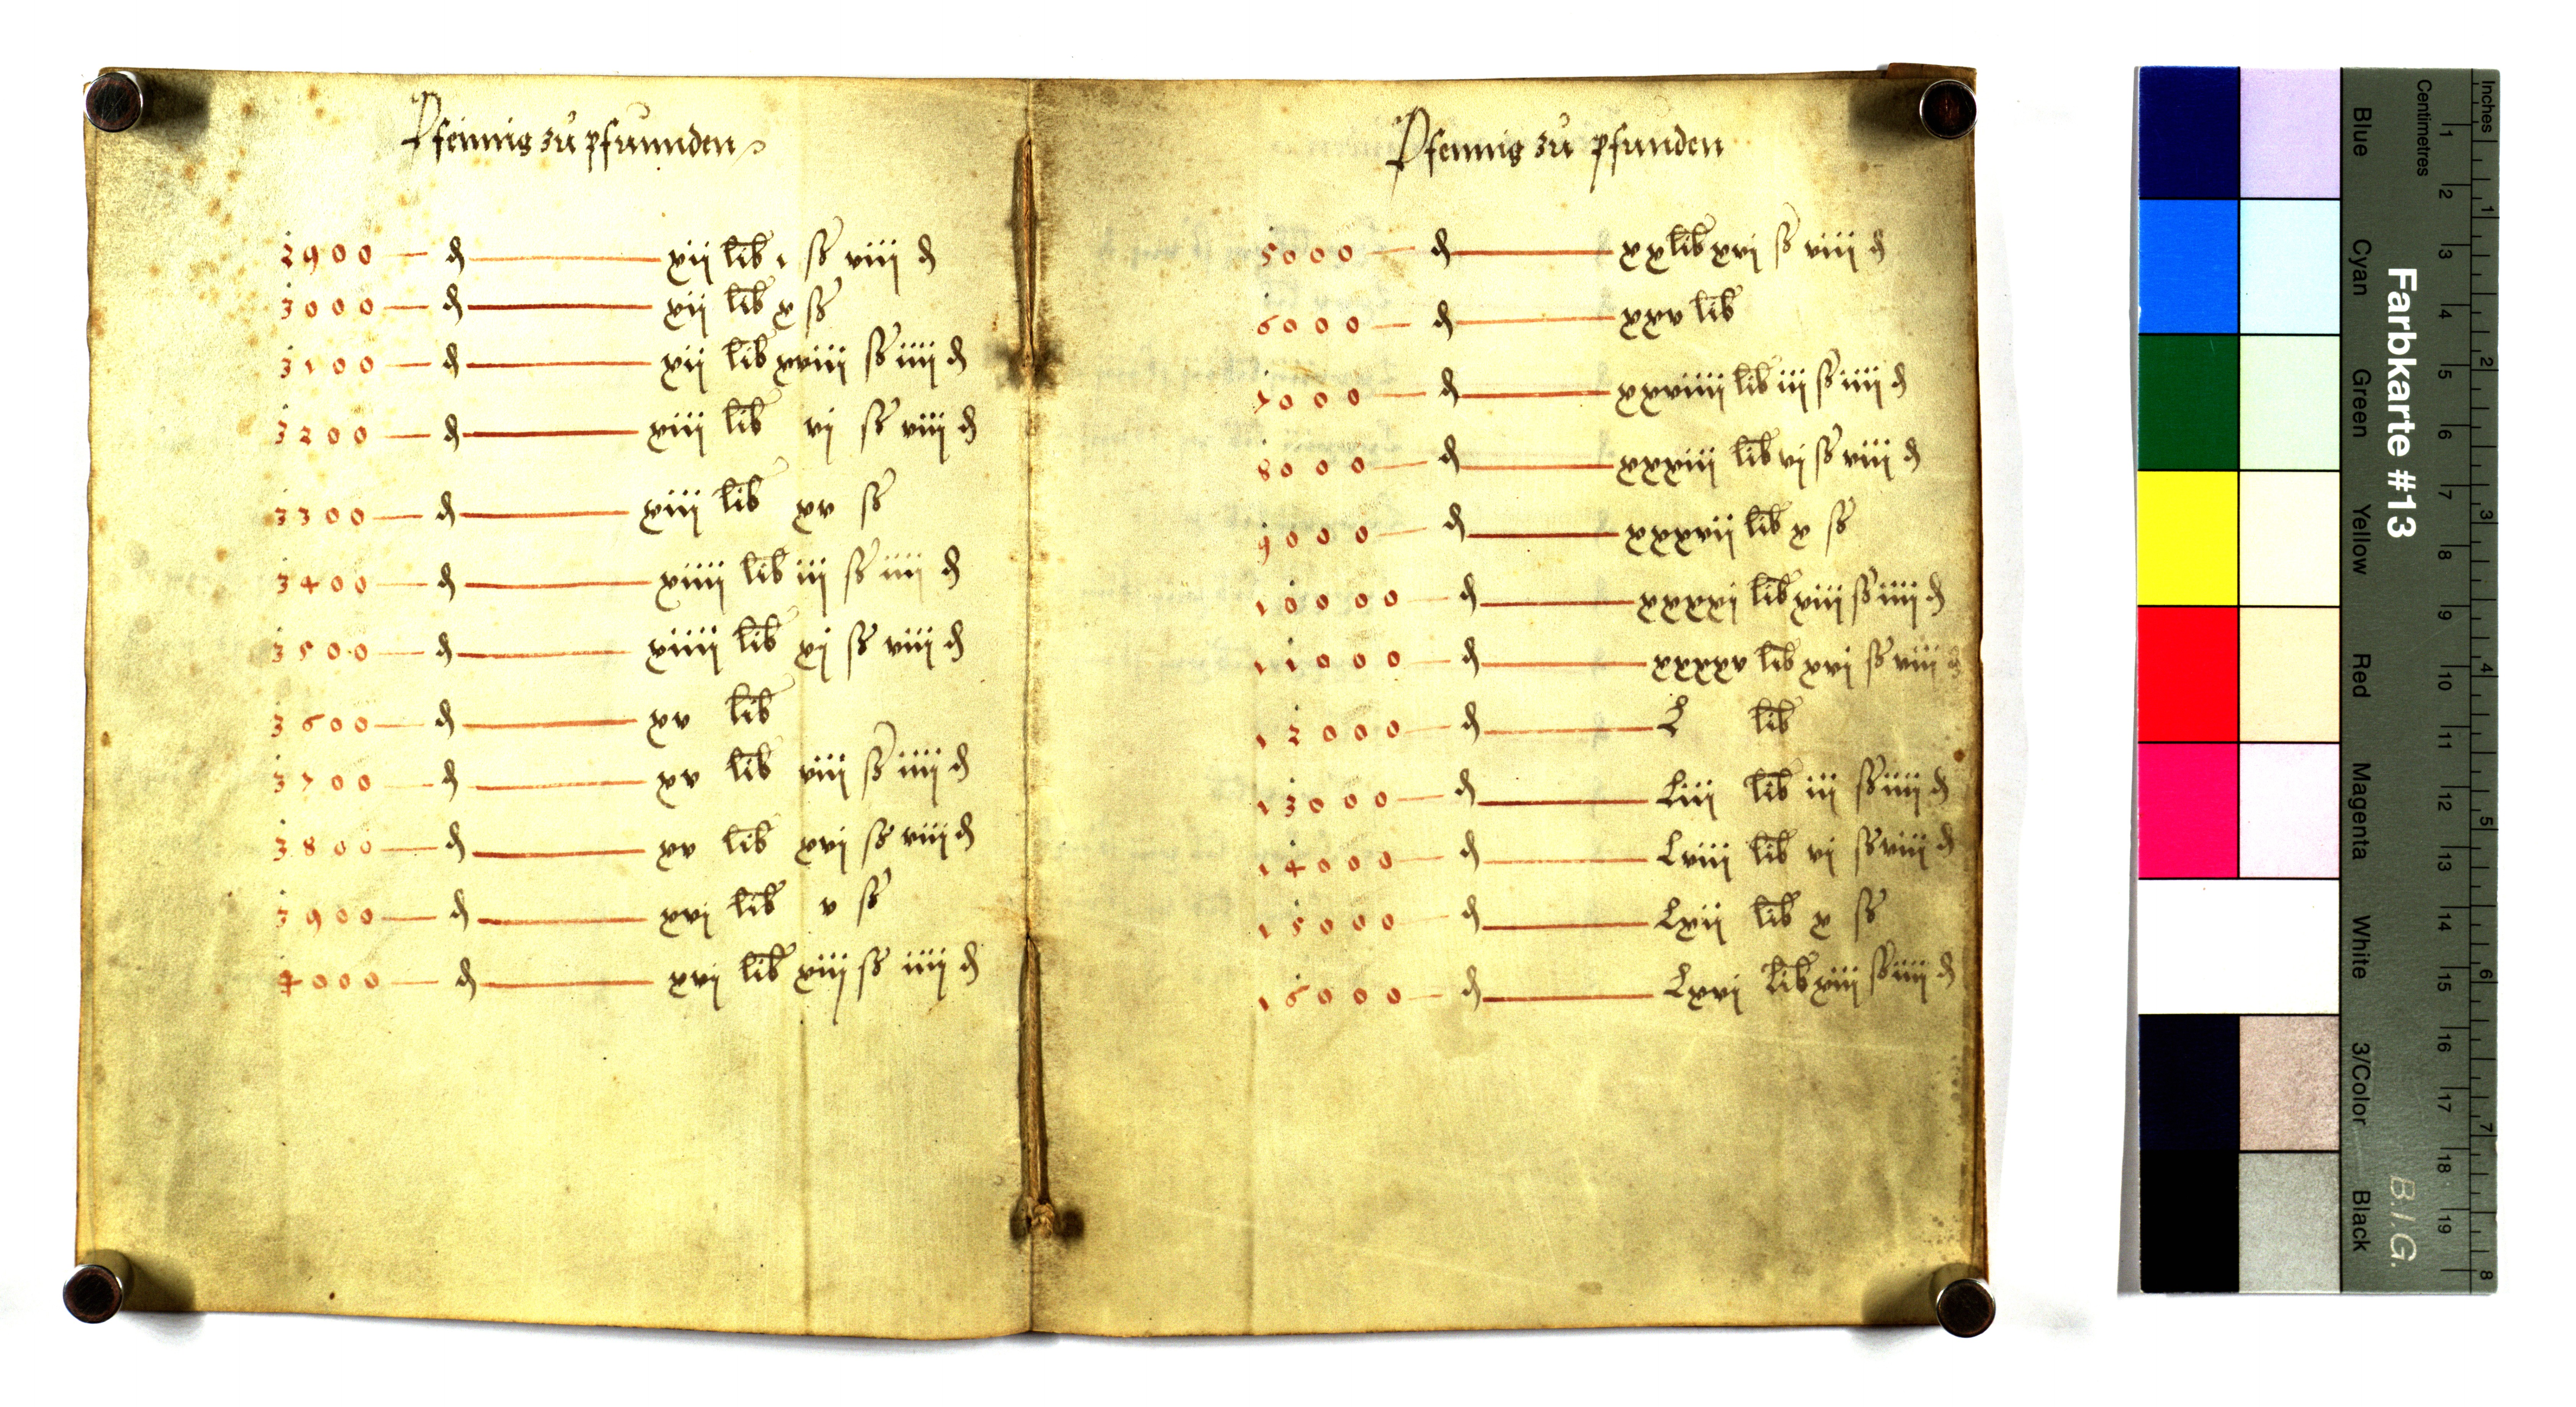 Pfennig zů pfunnden
2900 — ₰ — xij lib ı ß viij ₰
3000 — ₰ — xij lib x ß
3100 — ₰ — xij lib xviij ß iiij ₰
3200 — ₰ — xiij lib vj ß viij ₰
3300 — ₰ — xiij lib xv ß
3400 — ₰ — xiiij lib iij ß iiij ₰
3500 — ₰ — xiiij lib xj ß viij ₰
3600 — ₰ — xv lib
3700 — ₰ — xv lib viij ß iiij ₰
3800 — ₰ — xv lib xvj ß viij ₰
3900 — ₰ — xvj lib v ß
4000 — ₰ — xvj lib xiij ß iiij ₰
Pfennig zů pfunden
5000 — ₰ — xx lib xvj ß viij ₰
6000 — ₰ — xxv lib
7000 — ₰ — xxviiij lib iij ß iiij ₰
8000 — ₰ — xxxiij lib vj ß viij ₰
9000 — ₰ — xxxvij lib x ß
10000 — ₰ — xxxxj lib xiij ß iiij ₰
11000 — ₰ — xxxxv lib xvj ß viij ₰
12000 — ₰ — L lib
13000 — ₰ — Liij lib iij ß iiij ₰
14000 — ₰ — Lviij lib vj ß viij ₰
15000 — ₰ — Lxij lib x ß
16000 — ₰ — Lxvj lib xiij ß iiij ₰
Inches 1 2 3 4 5 6 7 8
Centimetres 1 2 3 4 5 6 7 8 9 10 11 12 13 14 15 16 17 18 19
Farbkarte #13
B.I.G.
Blue Cyan Green Yellow Red Magenta White 3/Color Black